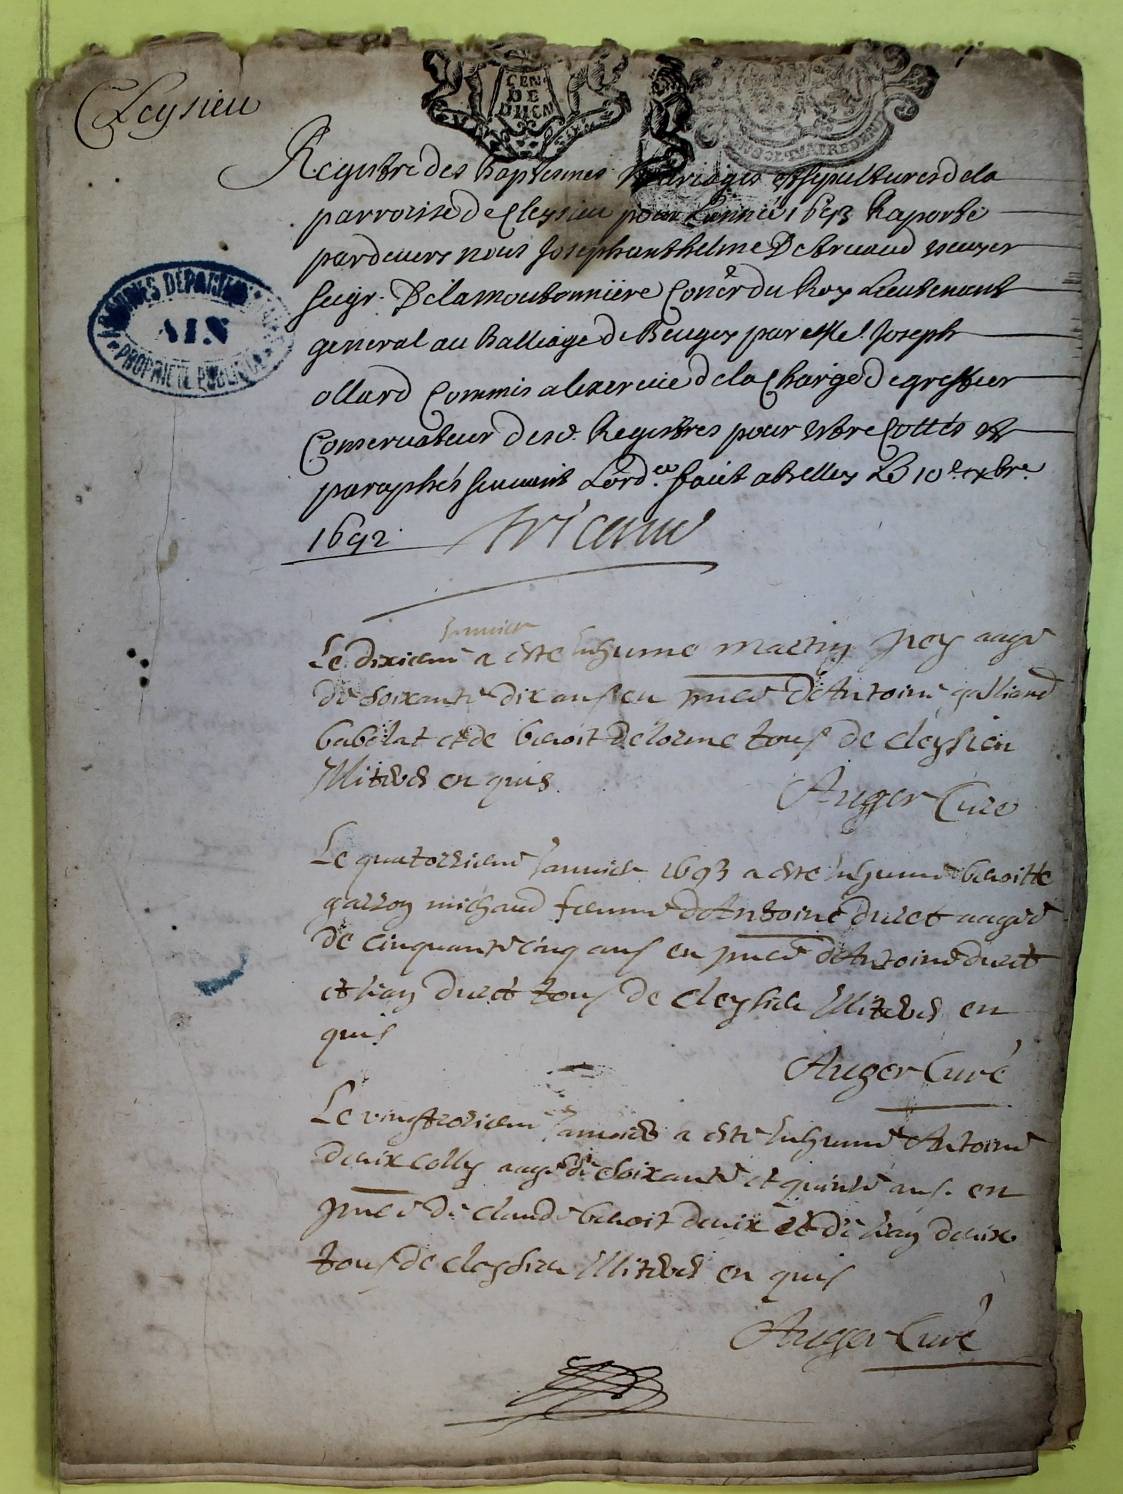 Cleysieu
GEN
DE
DUCN
Registre des baptesmes Mariages et sepultures de la
parroisse de Cleysieu pour L'année 1693 Raporté
pardevers nous Joseph anthelme escuyer
seigr. De lamoutonniere Coner du Roy Lieutenant
general au balliage de Beugey par Me. Joseph
ollard Commis a lexercice de la Charge de greffier
Conservateur desd. Registres pour estre Cottés et
paraphés suivant Lord.ce faict a belley Le 10e xbre
1692.
ARCHIVES DÉPARTEMENTALES
AIN
PROPRIÉTÉ PUBLIQUE
Janvier
Le dixieme a esté Inhumé martin aagé
de soixante dix ans en pnce d'Antoine galliand
babolat et de benoit Delorme tous de cleysieu
Illiteres enquis
Auger Curé
Le quatorsieme Janvier 1693 a esté Inhumé benoitte
michaud femme d'Antoine duret aagée
de cinquante cinq ans en pnce d'Antoine duret
et duret tous de cleysieu Illiteres en
quis
Auger Curé
Le Janvier a esté Inhumé Antoine
colly aagé de soixante et quinse ans en
pnce de claude benoit et de
tous de cleysieu Illiteres en quis
Auger Curé